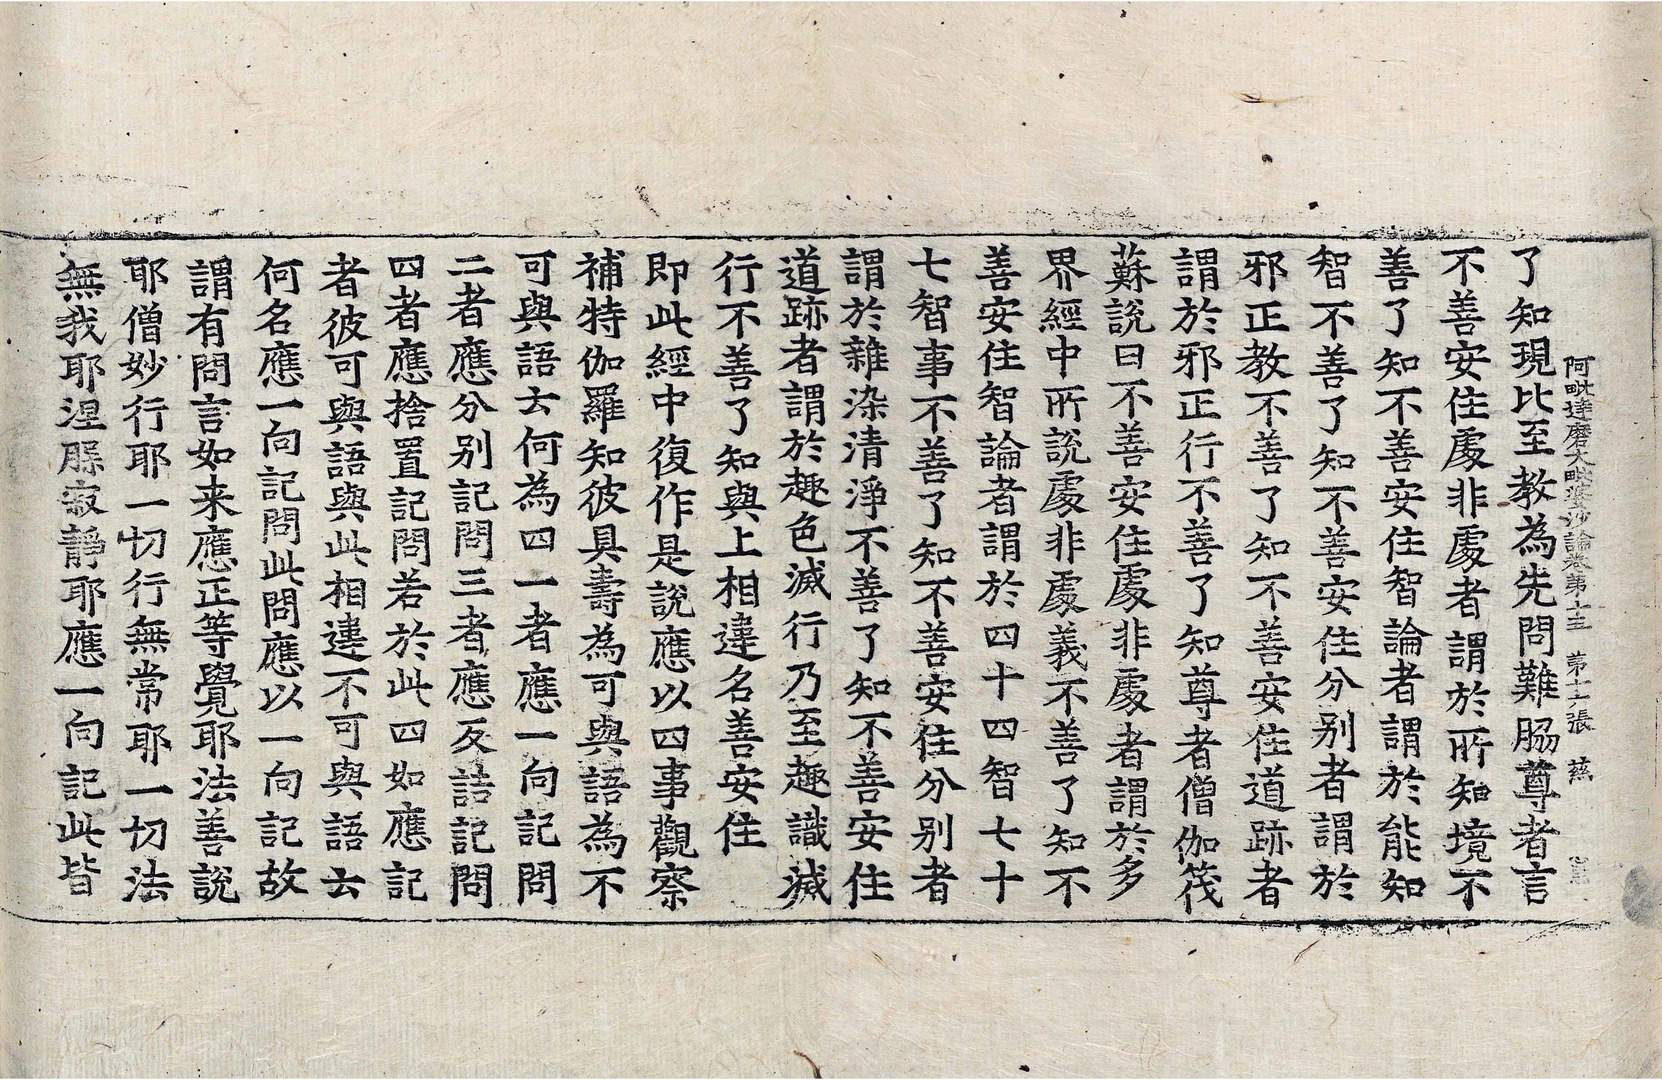 阿毗達磨大毗婆沙論卷第十五　第十六張　慈
了知現比至教為先問難脇尊者言
不善安住處非處者謂於所知境不
善了知不善安住智論者謂於能知
智不善了知不善安住分別者謂於
邪正教不善了知不善安住道跡者
謂於邪正行不善了知尊者僧伽筏
蘇說曰不善安住處非處者謂於多
界經中所說處非處義不善了知不
善安住智論者謂於四十四智七十
七智事不善了知不善安住分別者
謂於雜染清淨不善了知不善安住
道跡者謂於趣色滅行乃至趣識滅
行不善了知與上相違名善安住
即此經中復作是說應以四事觀察
補特伽羅知彼具壽為可與語為不
可與語云何為四一者應一向記問
二者應分別記問三者應反詰記問
四者應捨置記問若於此四如應記
者彼可與語與此相違不可與語云
何名應一向記問此問應以一向記故
謂有問言如来應正等覺耶法善說
耶僧妙行耶一切行無常耶一切法
無我耶涅槃寂靜耶應一向記此皆